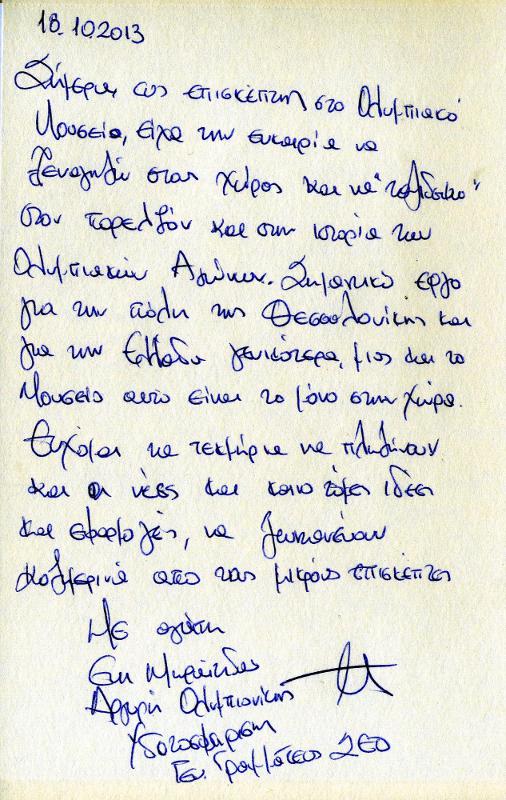 18.10.2013
Σήμερα, ως επισκέπτης στο Ολυμπιακό
Μουσείο, είχα την ευκαιρία να
ξεναγηθώ στους χώρους και να "ταξιδέψω"
στο παρελθόν και στην ιστορία των
Ολυμπιακών Αγώνων. Σημαντικό έργο
για την πόλη της Θεσσαλονίκης και
για την Ελλάδα γενικότερα, μιας και το
Μουσείο αυτό είναι το μόνο στην χώρα.
Εύχομαι τα τεκμήρια να πληθύνουν
και οι νέες και καινοτόμες ιδέες
και εφαρμογές, να
καθημερινά από τους μικρούς επισκέπτες
Με αγάπη
Εύη Μωραϊτίδου
Αργυρή Ολυμπιονίκης
Υδατοσφαίριση
Γεν. Γραμματέας ΣΕΟ